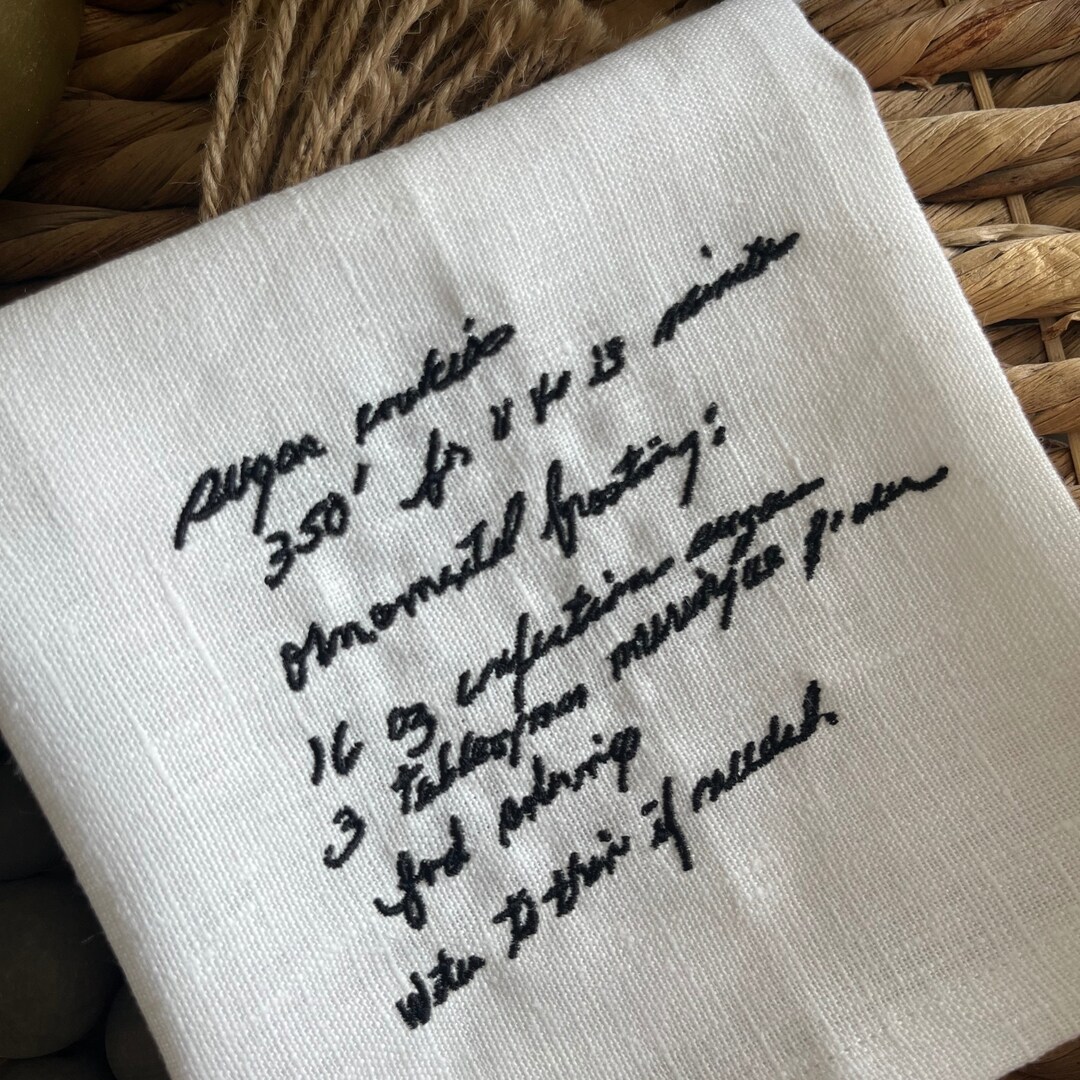 sugar cookies
350° for to 13 minutes
ornamental frosting:
16 oz confection sugar
3 tablespoon meringue powder
food coloring
water to thin if needed.